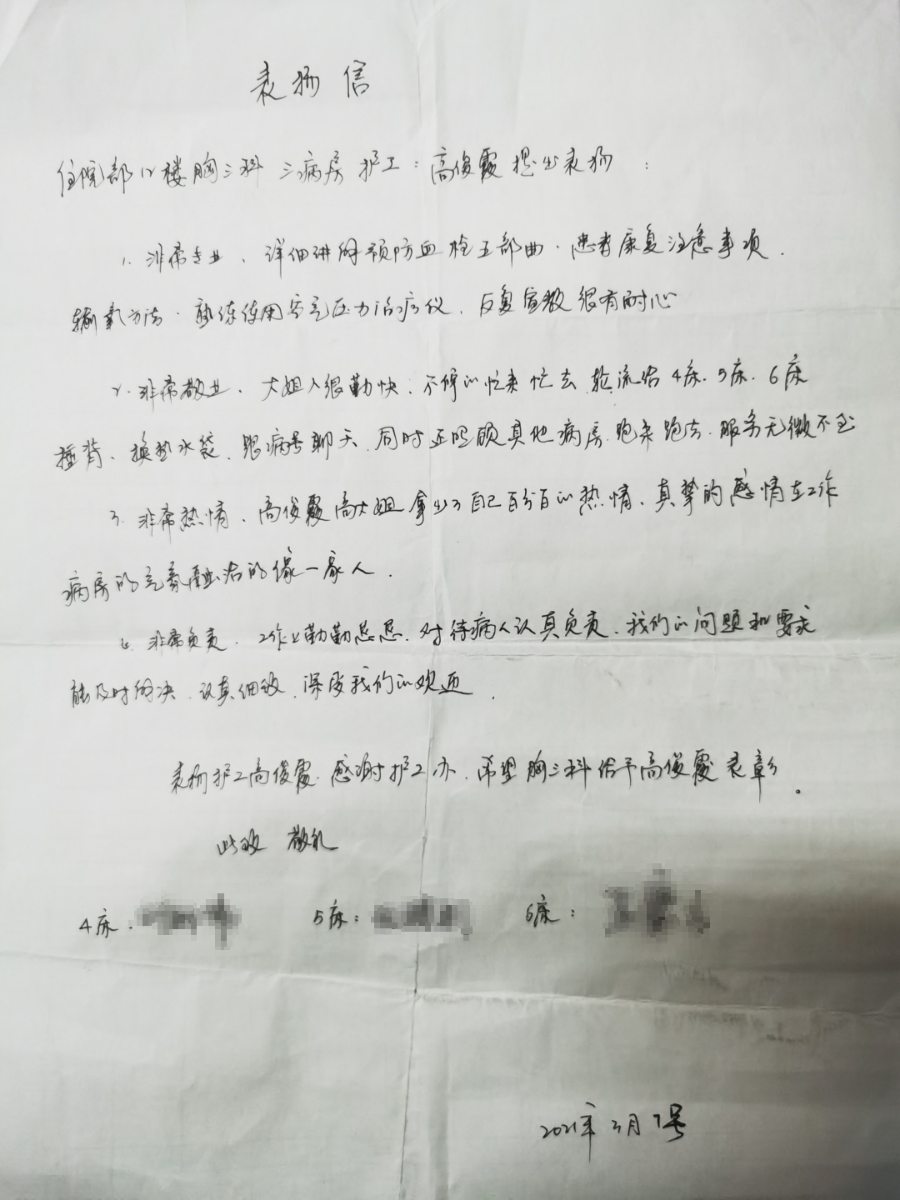 表扬信
住院部12楼胸三科三病房护工：高俊霞提出表扬：
1. 非常专业、详细讲解预防血栓五部曲、患者康复注意事项、
输氧方法、熟练使用空气压力治疗仪、反复宣教很有耐心
2. 非常敬业、大姐人很勤快、不停的忙来忙去轮流给4床、5床、6床
捶背、换热水袋、跟病号聊天、同时还照顾其他病房、跑来跑去、服务无微不至
3. 非常热情、高俊霞高大姐拿出了自己百分百的热情、真挚的感情在工作
病房的气氛的像一家人.
4. 非常负责、工作上勤勤恳恳、对待病人认真负责、我们的问题和要求
能及时解决、认真细致、深受我们的欢迎.
表扬护工高俊霞、感谢护工办、希望胸三科给予高俊霞表彰。
此致 敬礼
4床： 5床： 6床：
2021年3月7号